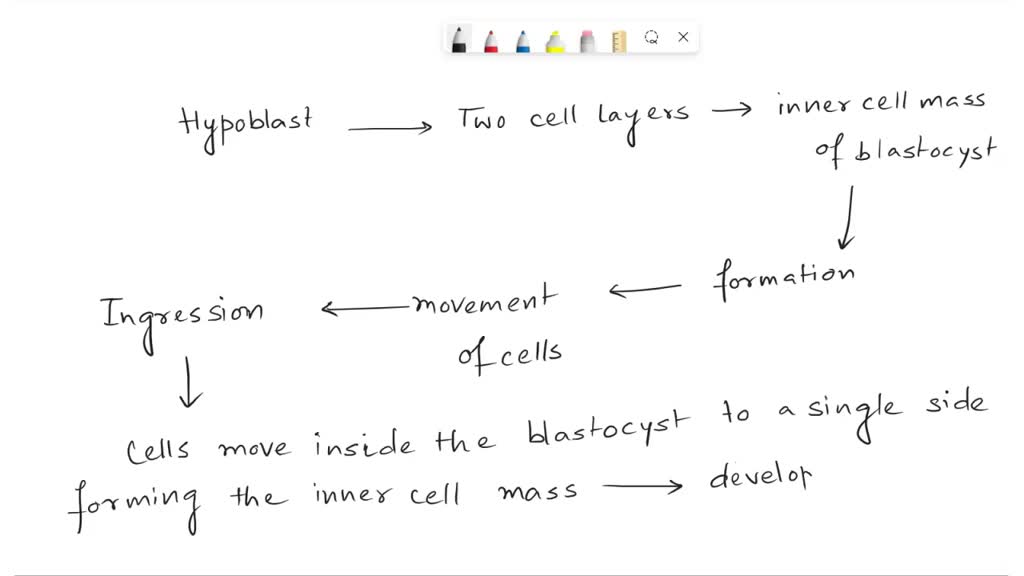 Hypoblast → Two cell layers → inner cell mass
of blastocyst
↓
Ingression ← movement ← formation
of cells
↓
Cells move inside the blastocyst to a single side
forming the inner cell mass → develop